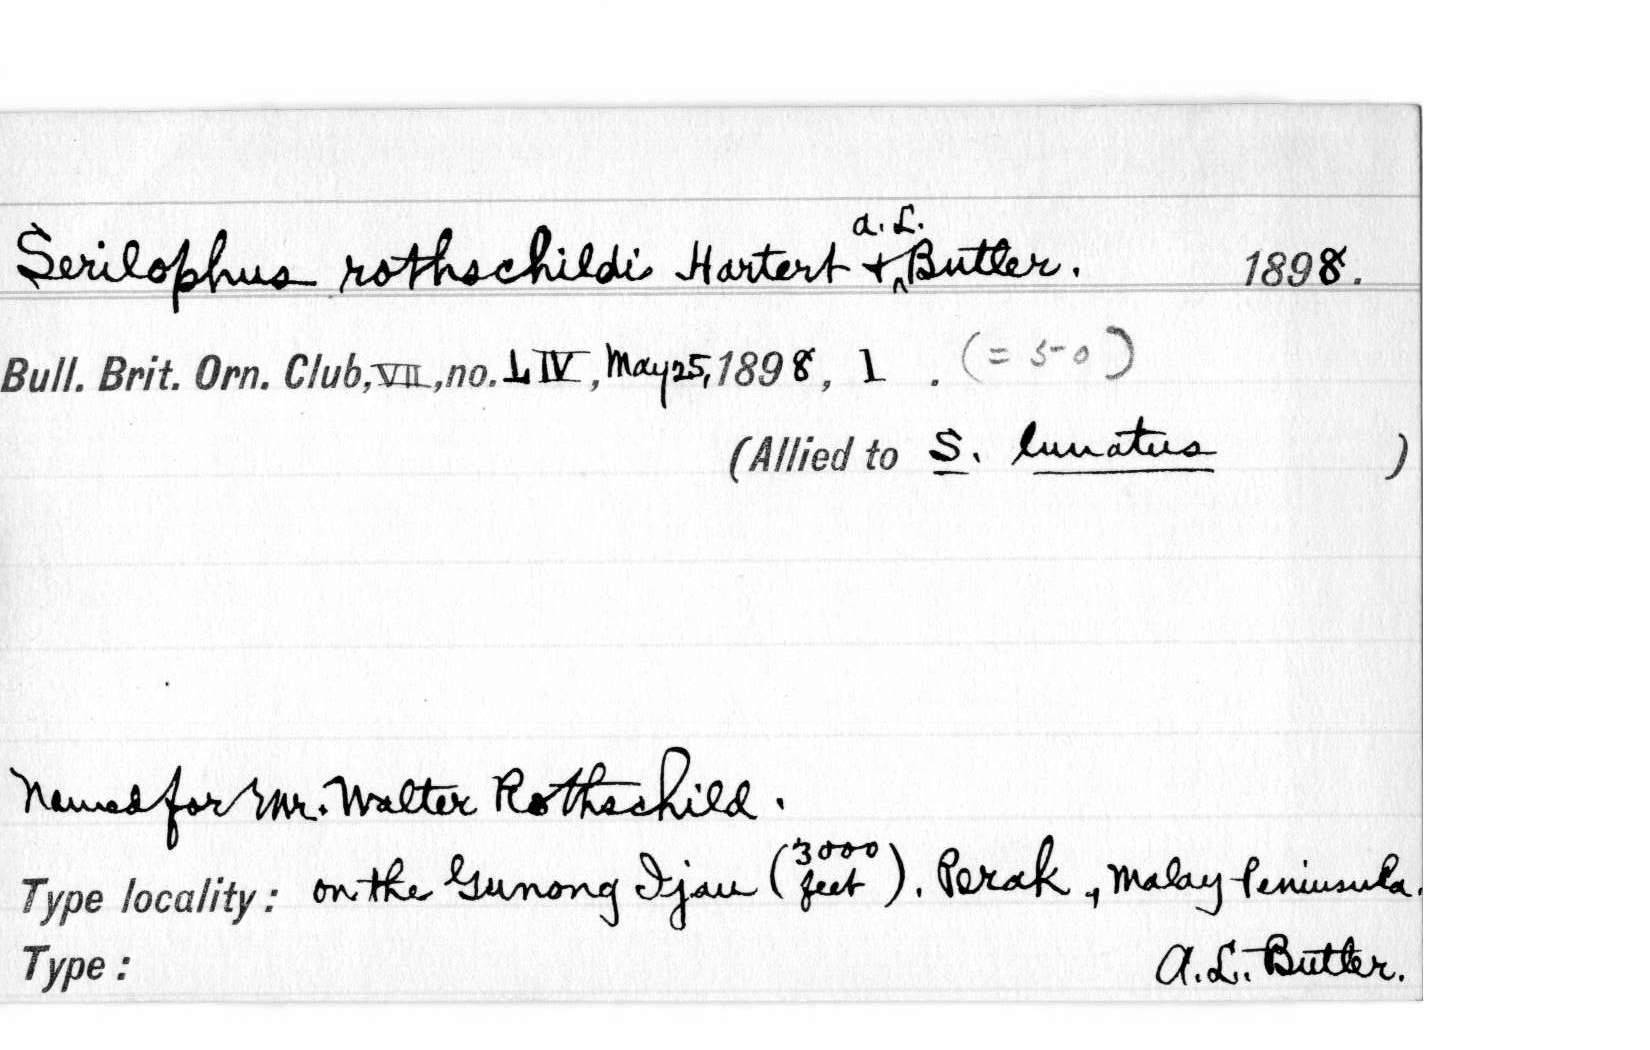 Serilophus rothschildi Hartert & ^A. L. Butler. 1898.
Bull. Brit. Orn. Club, VII, no. LIV, May 25, 1898, 1 . (= 50)
(Allied to S. lunatus )
Named for Mr. Walter Rothschild.
Type locality: on the Gunong Ijau (3000 feet). Perak, Malay Peninsula.
Type: A. L. Butler.